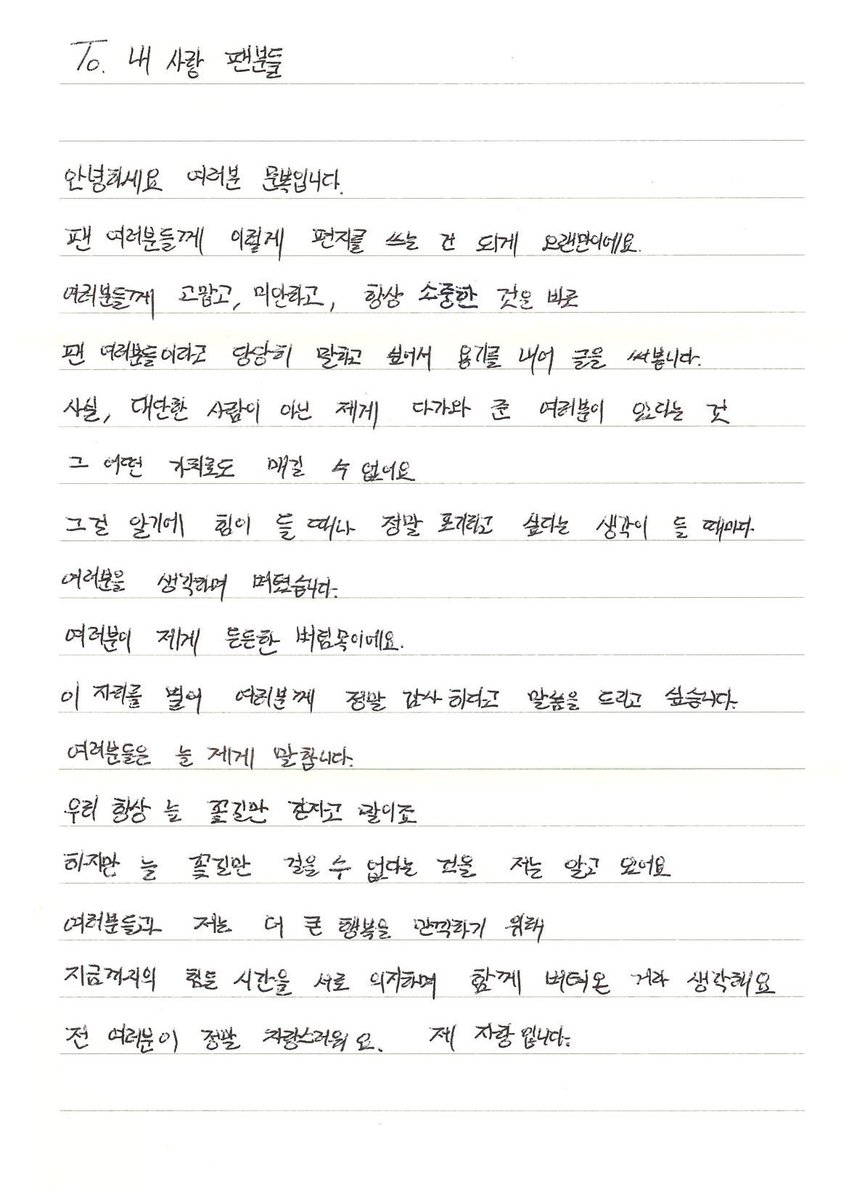 To. 내 사랑 팬분들
안녕하세요 여러분 문복입니다.
팬 여러분들께 이렇게 편지를 쓰는 건 되게 오랜만이에요.
여러분들께 고맙고, 미안하고, 항상 소중한 것은 바로
팬 여러분들이라고 당당히 말하고 싶어서 용기를 내어 글을 써봅니다.
사실, 대단한 사람이 아닌 제게 다가와 준 여러분이 있다는 것
그 어떤 가치로도 매길 수 없어요
그걸 알기에 힘이 들 때나 정말 포기하고 싶다는 생각이 들 때마다
여러분을 생각하며 버텼습니다.
여러분이 제게 든든한 버팀목이에요.
이 자리를 빌어 여러분께 정말 감사하다고 말씀을 드리고 싶습니다.
여러분들은 늘 제게 말합니다.
우리 항상 늘 꽃길만 걷자고 말이죠
하지만 늘 꽃길만 걸을 수 없다는 것을 저는 알고 있어요
여러분들과 저는 더 큰 행복을 만끽하기 위해
지금까지의 힘든 시간을 서로 의지하며 함께 버텨온 거라 생각해요
전 여러분이 정말 자랑스러워요. 제 자랑입니다.